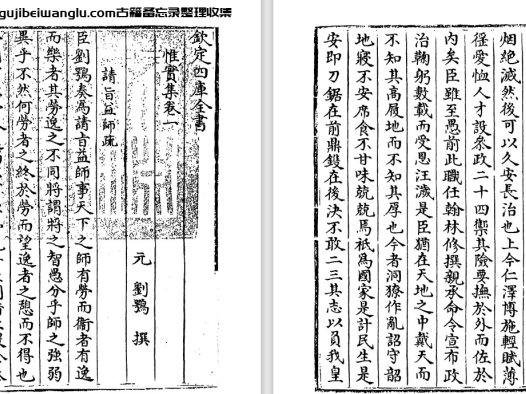 gujibeiwanglu.com古籍备忘录整理收集
欽定四庫全書
惟實集卷一
元 劉鶚 撰
請旨益師疏
臣劉鶚奏為請旨益師事天下之師有勞而衛者有逸
而樂者其勞逸之不同將謂將之智愚分乎師之強弱
異乎不然何勞者之終於勞而望逸者之憩而不得也
烟絕滅然後可以久安長治也上今仁澤博施輕賦薄
徑愛恤人才設叅政二十四禦其險要撫於外而佐於
內矣臣雖至愚前此職任翰林修撰親承命令宣布政
治鞠躬數載而受恩汪濊是臣猶在天地之中戴天而
不知其高履地而不知其厚也今者洞獠作亂詔守韶
地寢不安席食不甘味兢兢焉祇為國家是計民生是
安即刀鋸在前鼎鑊在後決不敢二三其志以負我皇